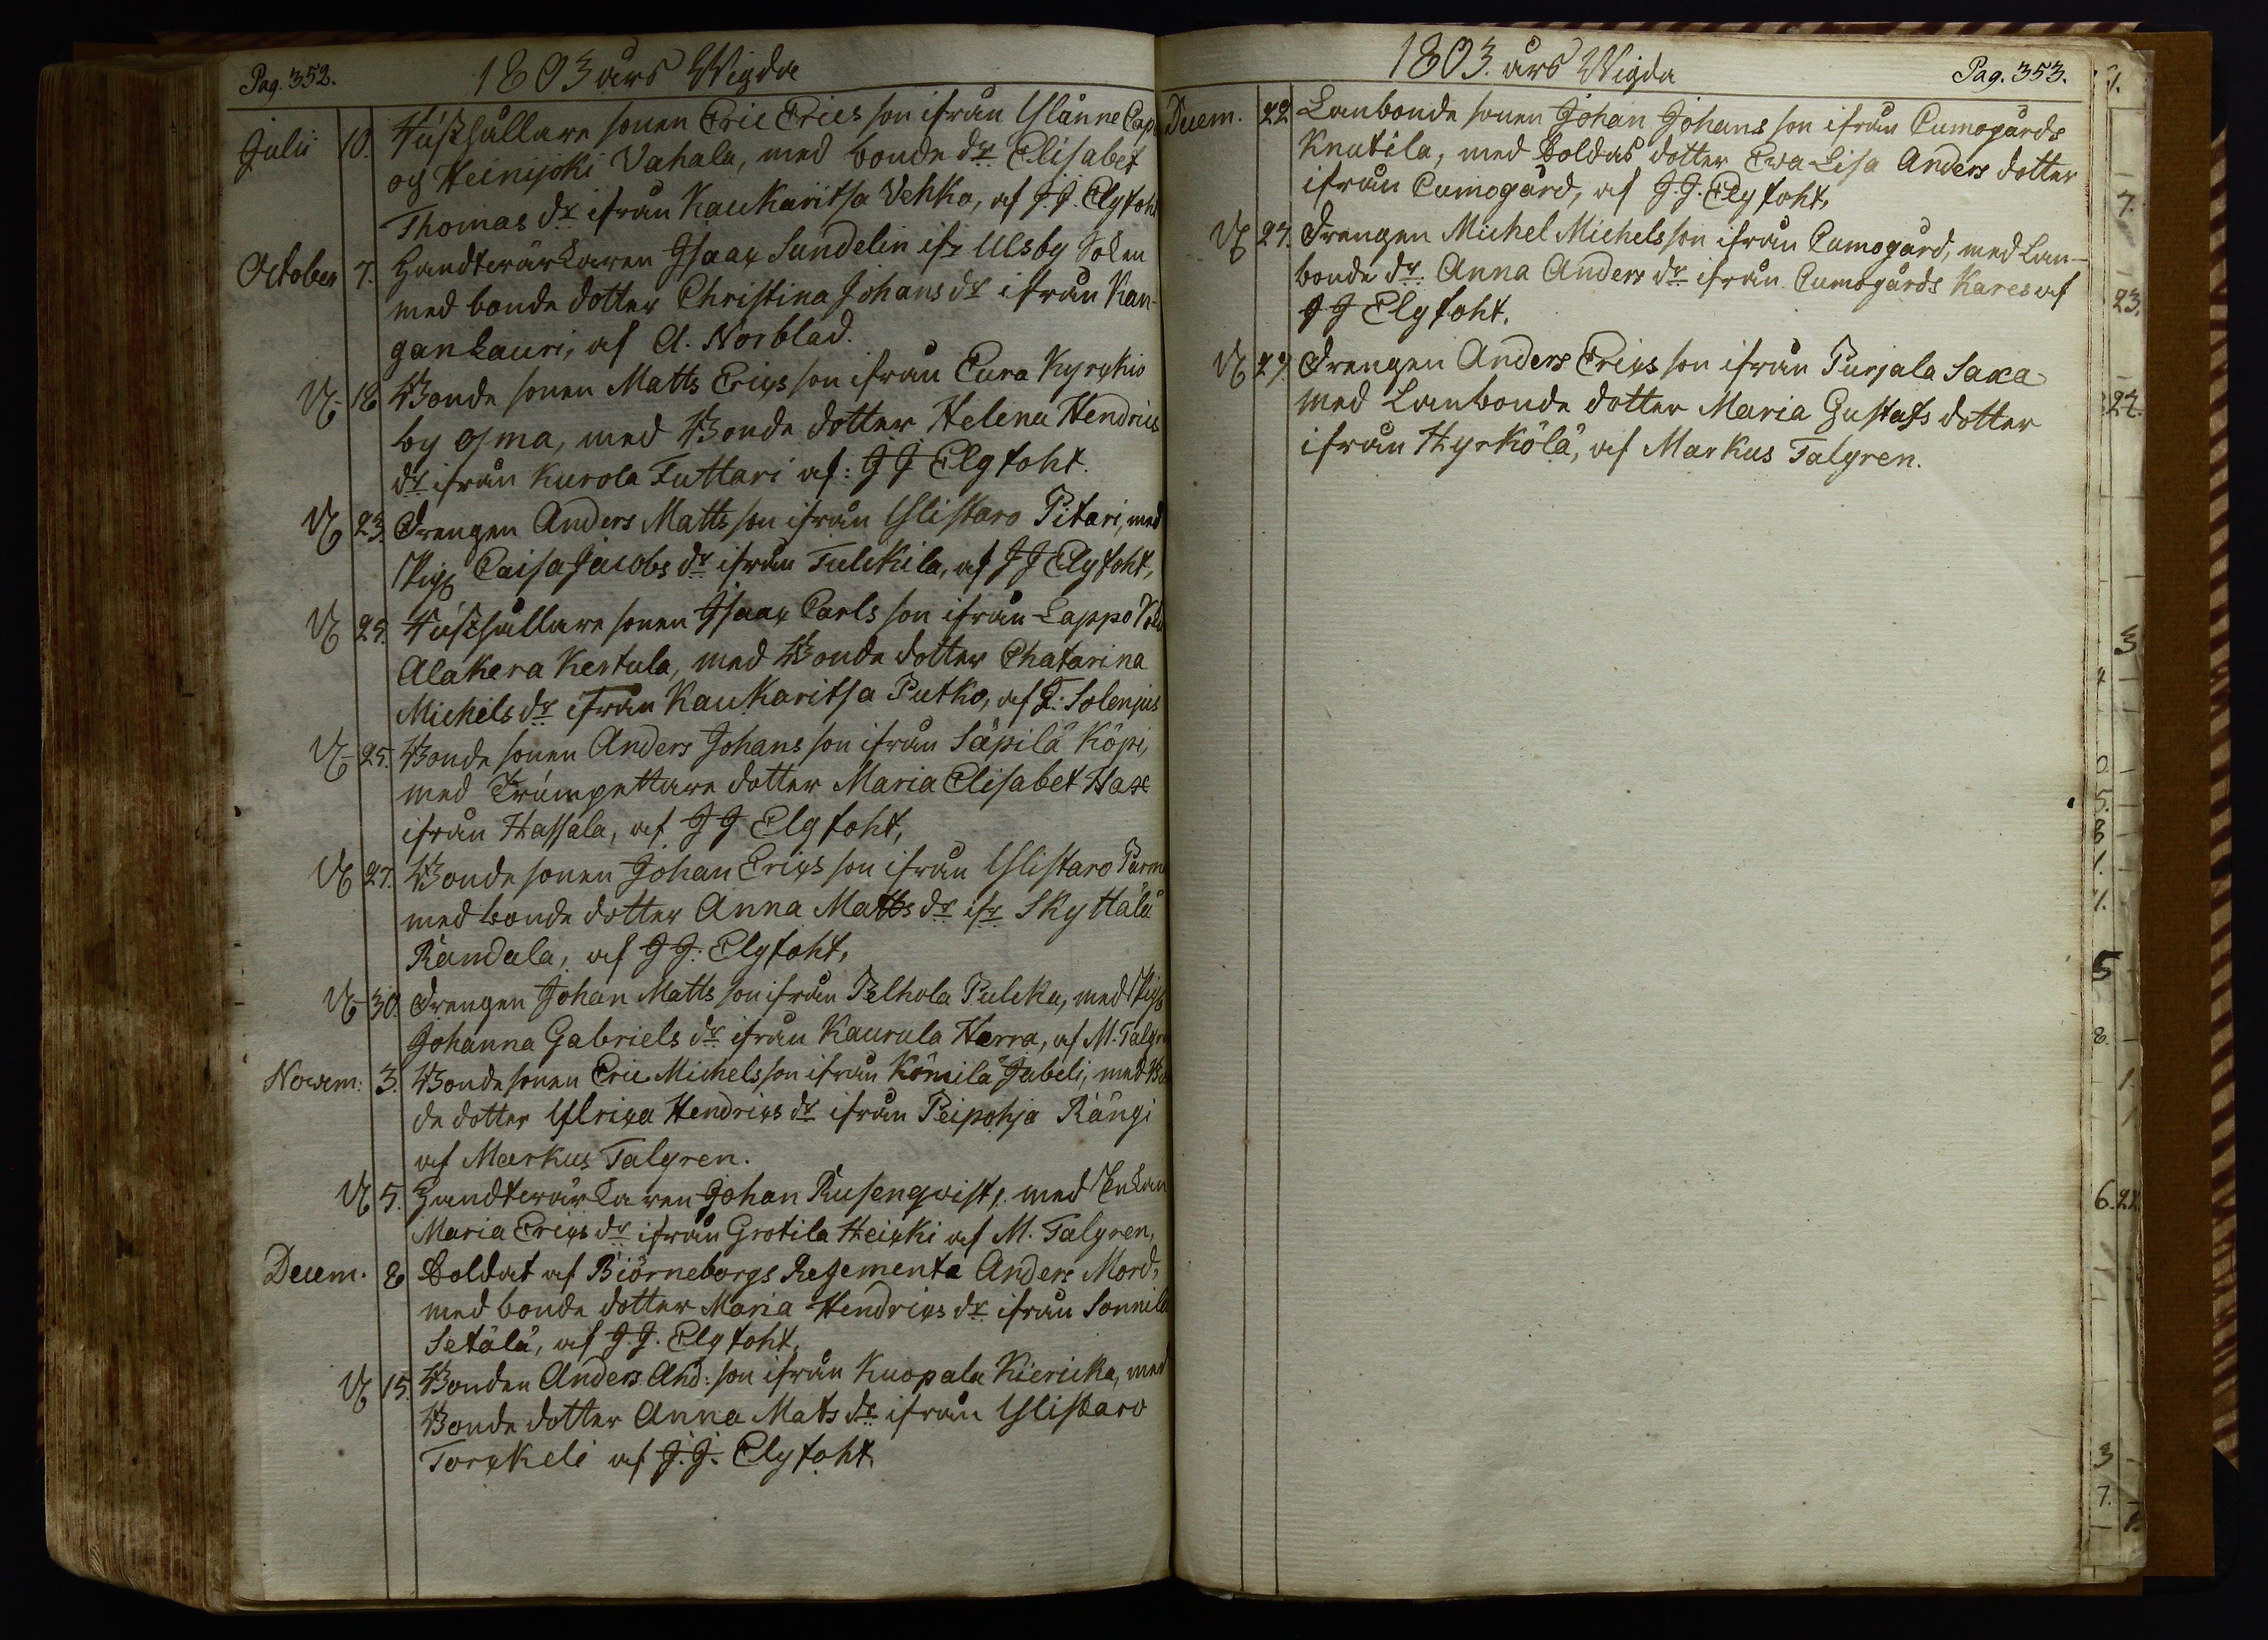 Pag. 352.
1803 års Wigda
Julii 10. Rusthållare sonen Eric Erics son ifrån Yläne Cap
og Heinijoki Vahala, med bonde dr. Elisabet
Thomas dr. ifrån Kaukaritsa Vehko, af J. J. Elgfoht
October 7. Handtwärkaren Isaac Sundelin ifr Ulsby Sokn
med bonde dotter Christina Johans dr ifrån Kan-
gan Lauri, af A. Norblad.
18 Bonde sonen Matts Erics son ifrån Eura Kyrckio
by Ojma, med Bonde dotter Helena Hendrics
dr ifrån Kurola Tuttari af: J J Elgfoht.
23. Drengen Anders Matts son ifrån Ylistaro Pitari, med
Pig. Caisa Jacobs dr ifrån Tulckila, af J J Elgfoht,
25. Rusthållare sonen Isaac Carls son ifrån Lappo
Alakera Kertula, med Bonde dotter Chatarina
Michels dr ifrån Kaukaritsa Putko, af F: Solenius
25. Bonde sonen Anders Johans son ifrån Säpilä Köpi,
med Trumpettare dotter Maria Elisabet Hax
ifrån Hassala, af J J Elgfoht,
27. Bonde sonen Johan Erics son ifrån Ylistaro Parm
med bonde dotter Anna Matts dr ifr Skyttälä
Randala, af J J. Elgfoht,
30. Drengen Johan Matts son ifrån Pelhola Pulcka, med Pig.
Johanna Gabriels dr ifrån Kaurula Herra, af M. Talgren
Novem: 3. Bonde sonen Eric Michels son ifrån Kömilä Jubeli, med Bon
de dotter Ulrica Hendrics dr ifrån Peipohja Rängi
af Markus Talgren.
5. Handtwärkaren Johan Rusenqvist, med Enkan
Maria Erics dr ifrån Grotila Heicki af M. Talgren,
Decem. 8 Soldat af Biörneborgs Regemente Anders Mord,
med bonde dotter Maria Hendrics dr ifrån Sonnila
Setälä, af J. J. Elgfoht,
15. Bonden Anders And: son ifrån Kuopala Kiericka, med
Bonde dotter Anna Mats dr ifrån Ylistaro
Torckeli af J. J. Elgfoht
1803. års Wigda
Pag. 353.
Decem. 22 Lanbonde sonen Johan Johans son ifrån Cumogårds
Knutila, med Soldas dotter Ewa Lisa Anders dotter
ifrån Cumogård, af J. J. Elgfoht,
27. Drengen Michel Michels son ifrån Cumogård, med Lan-
bonde dr. Anna Anders dr ifrån Cumogårds Kares af
J J Elgfoht.
27. Drengen Anders Erics son ifrån Purjala Saxa
med Lanbonde dotter Maria Gustafs dotter
ifrån Hyrkölä, af Markus Talgren.